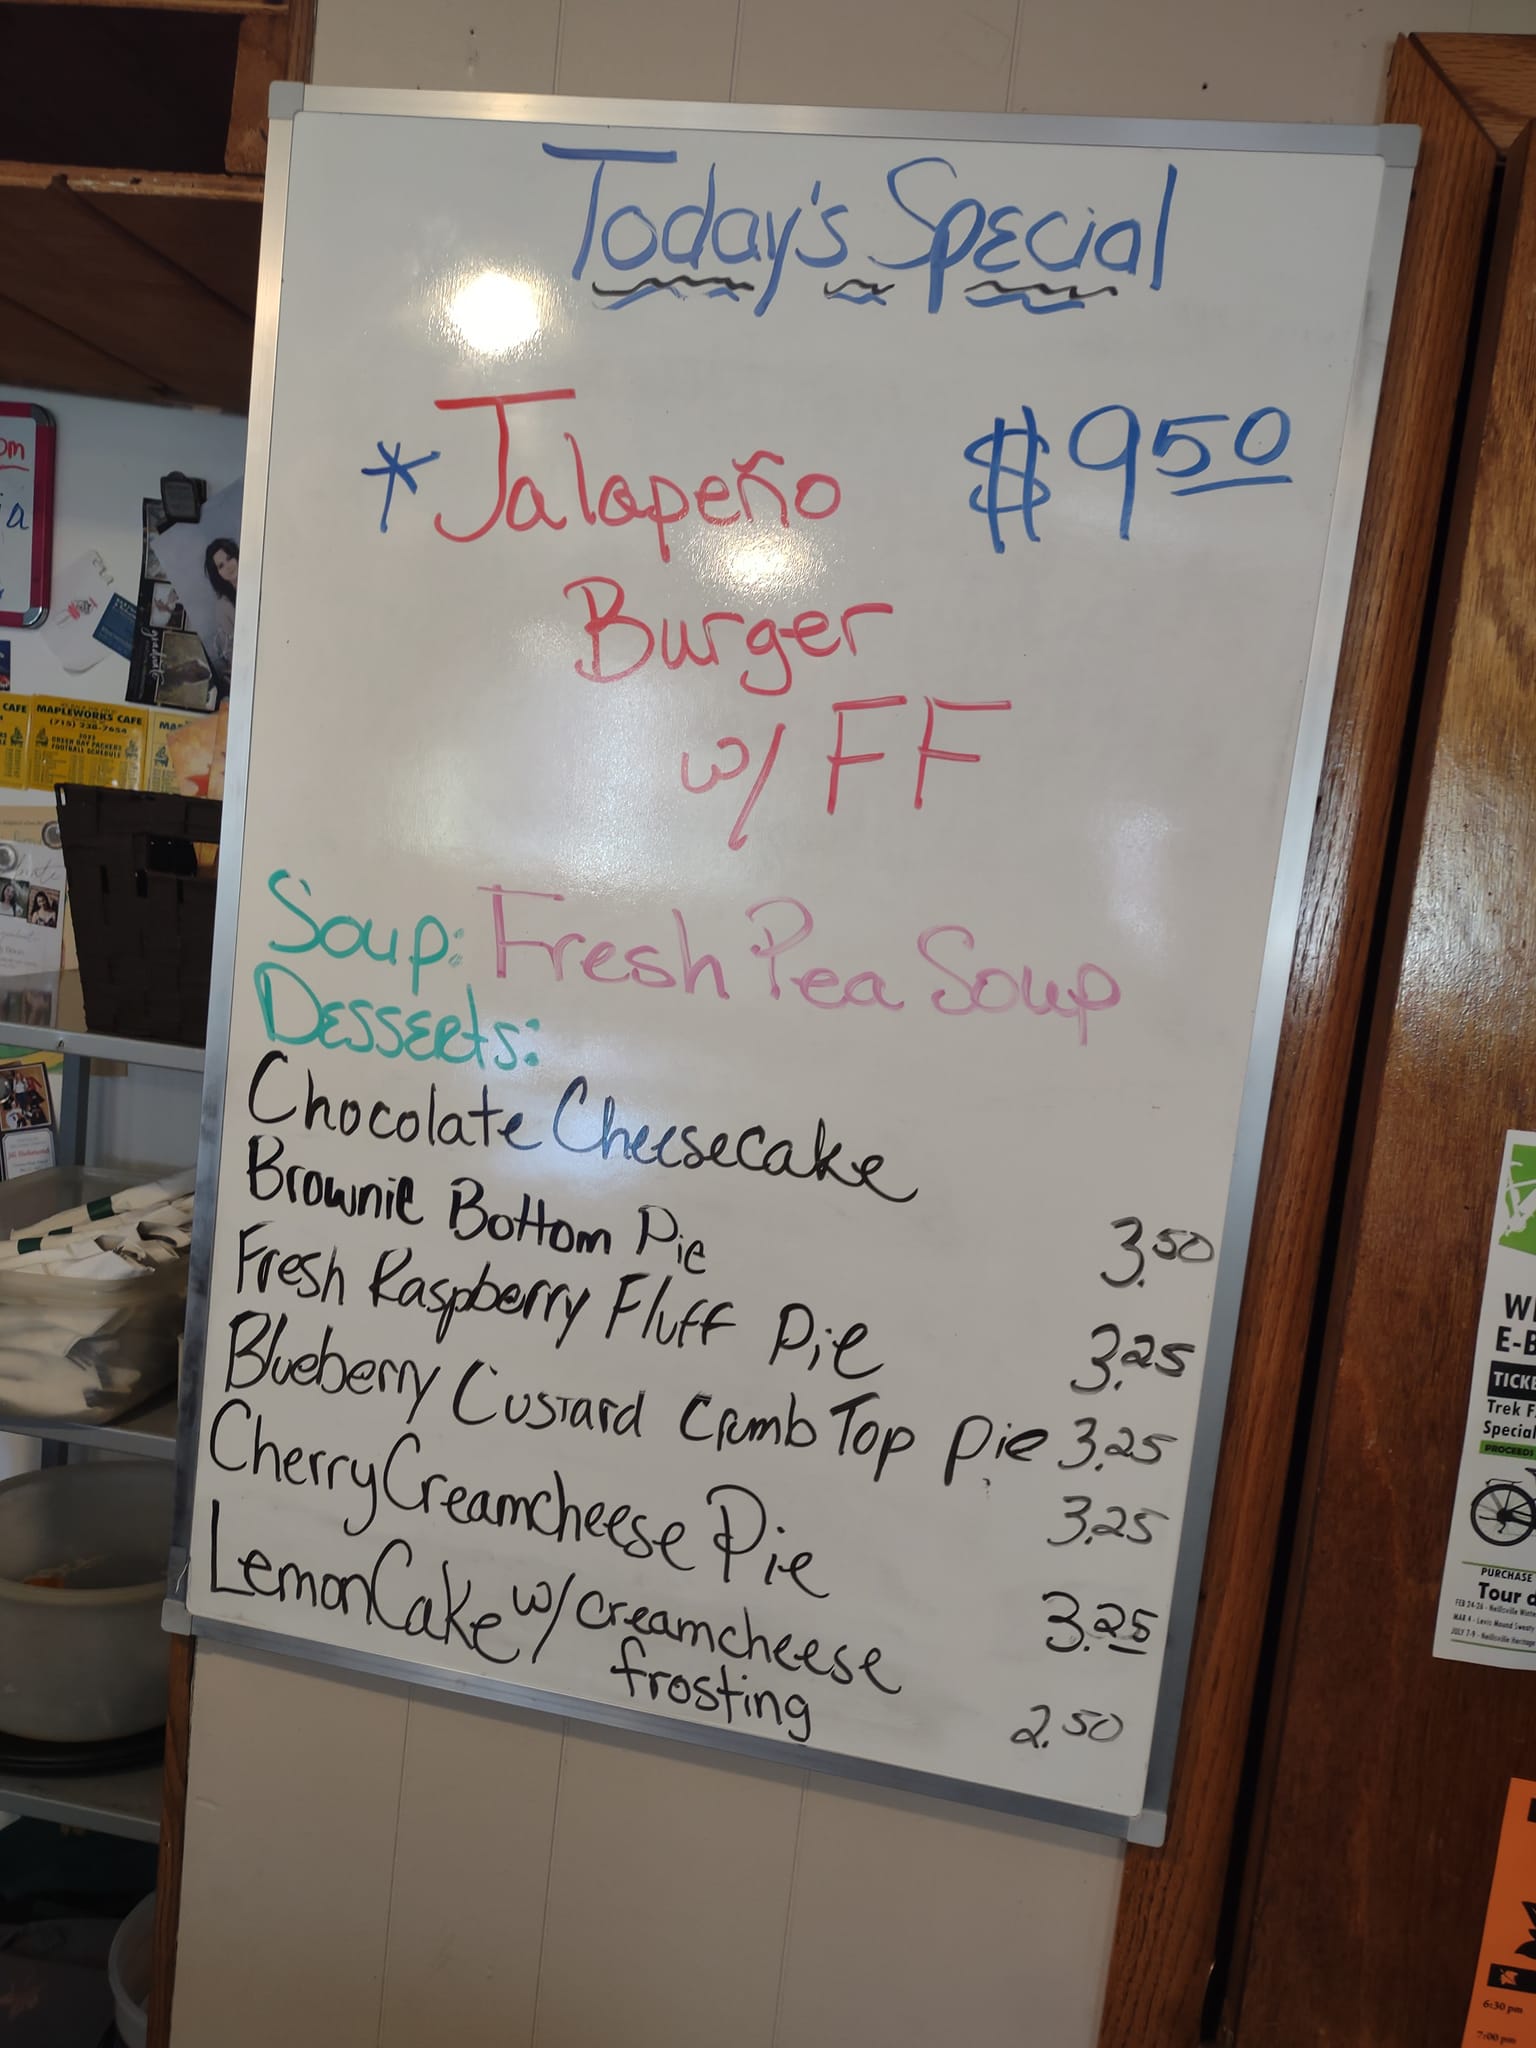 Today's Special
* Jalapeño $9.50
Burger
w/ FF
Soup: Fresh Pea Soup
Desserts:
Chocolate Cheesecake 3.50
Brownie Bottom Pie 3.25
Fresh Raspberry Fluff Pie 3.25
Blueberry Custard Crumb Top Pie 3.25
Cherry Creamcheese Pie 3.25
Lemon Cake w/ creamcheese
frosting 2.50
om
ia
CAFE
MAPLEWORKS CAFE
(715) 238-7654
GREEN BAY PACKERS
FOOTBALL SCHEDULE
MAP
E-B
TICKE
Trek F
Special
PROCEEDS
PURCHASE
Tour d
FEB 24-26 - Neillsville Winte
MAR 4 - Levis Mound Sweaty
JULY 7-9 - Neillsville Heritage
6:30 pm
7:00 pm